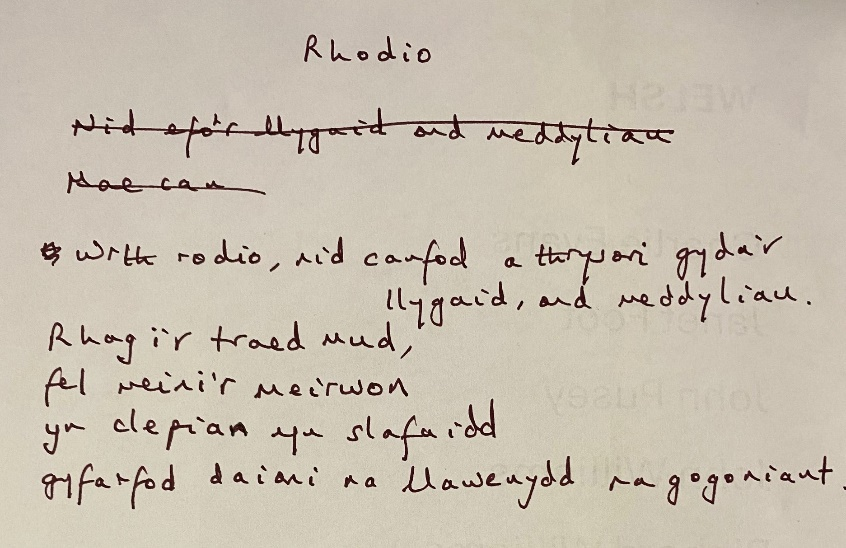 Rhodio
Nid efo'r llygaid ond meddyliau
Mae can
Wrth rodio, nid canfod a thrysori gyda'r
llygaid, ond meddyliau.
Rhag i'r traed mud,
fel meini'r meirwon
yn clepian yn slafaidd
gyfarfod daioni na llawenydd na gogoniant.
WELSH
Evans
Janet Foot
John Pusey